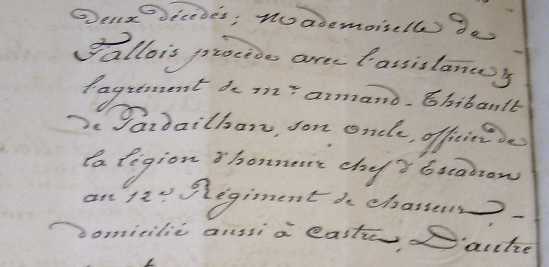 Deux décédés ; Mademoiselle de
Fallois procède avec l'assistance &
l'agrément de mr armand-Thibault
de Pardailhan, son oncle, officier de
la légion d'honneur chef d'Escadron
au 12e Régiment de chasseurs -
domicilié aussi à Castres, D'autre